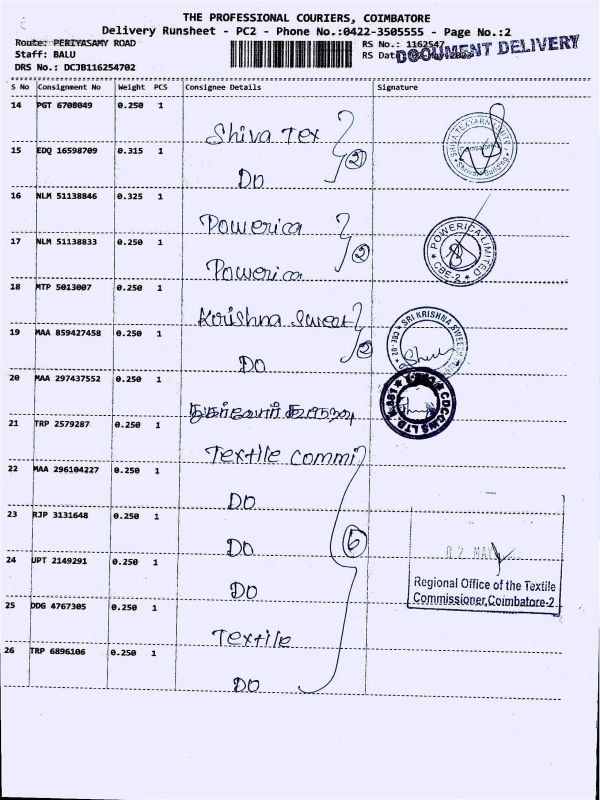 THE PROFESSIONAL COURIERS, COIMBATORE
Delivery Runsheet - PC2 - Phone No.:0422-3505555 - Page No.:2
Route: PERIYASAMY ROAD
RS No.: 1162547
Staff: BALU
RS Dat
DOCUMENT DELIVERY
DRS No.: DCJB116254702
S No Consignment No Weight PCS Consignee Details Signature
14 PGT 6708049 0.250 1 Shiva Tex
15 EDQ 16598709 0.315 1 DO
2
16 NLM 51138846 0.325 1 Powerica
17 NLM 51138833 0.250 1 Powerica
2
POWERICA LIMITED
CBE-2
18 MTP 5013007 0.250 1 Krishna Sweet
19 MAA 859427458 0.250 1 DO
2
SRI KRISHNA SWEETS
20 MAA 297437552 0.250 1
CDCCWS LTD
21 TRP 2579287 0.250 1 Textile Commi
22 MAA 296104227 0.250 1 DO
23 RJP 3131648 0.250 1 DO
24 UPT 2149291 0.250 1 DO
25 DDG 4767305 0.250 1 Textile
26 TRP 6896106 0.250 1 DO
6
02 MAY
Regional Office of the Textile
Commissioner, Coimbatore-2